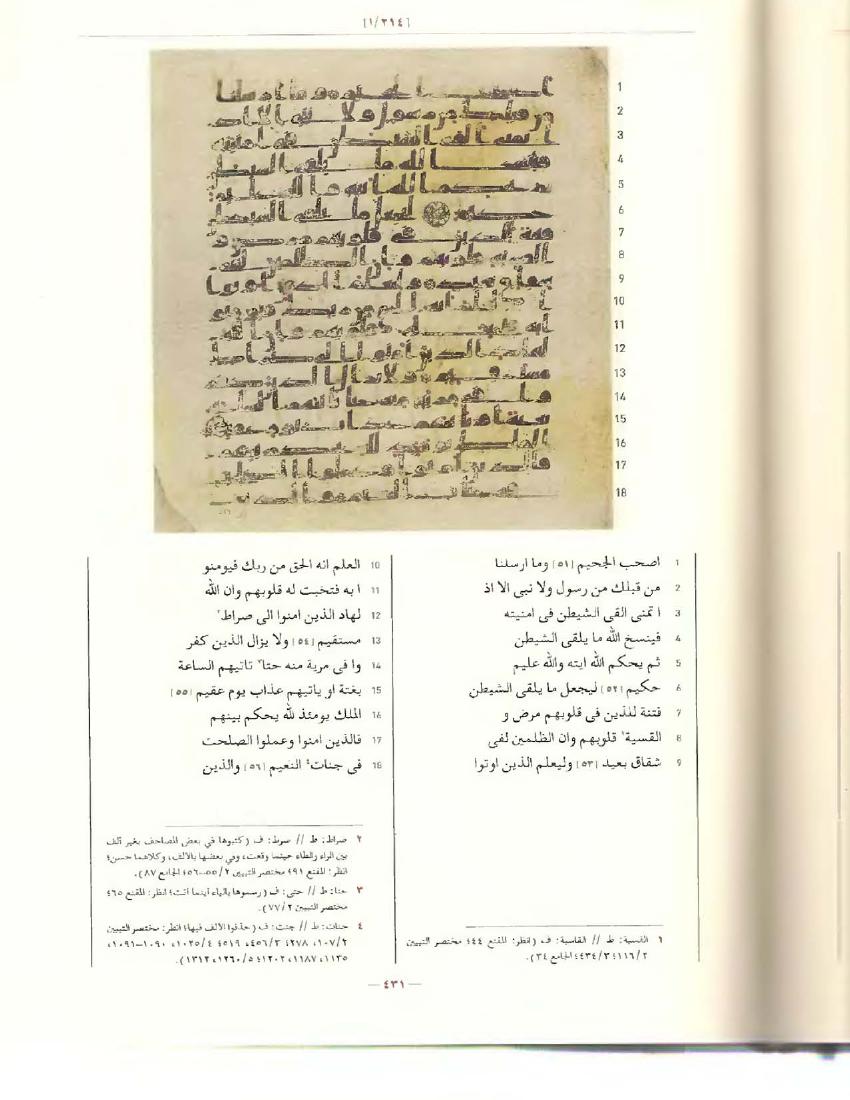 [٣١٤/١]
1
2
3
4
5
6
7
8
9
10
11
12
13
14
15
16
17
18
1 اصحب الجحيم [٥١] وما ارسلنا
2 من قبلك من رسول ولا نبى الا اذ
3 ا تمنى القى الشيطن فى امنيته
4 فينسخ الله ما يلقى الشيطن
5 ثم يحكم الله ايته والله عليم
6 حكيم [٥٢] ليجعل ما يلقى الشيطن
7 فتنة للذين فى قلوبهم مرض و
8 القسية١ قلوبهم وان الظلمين لفى
9 شقاق بعيد [٥٣] وليعلم الذين اوتوا
10 العلم انه الحق من ربك فيومنو
11 ا به فتخبت له قلوبهم وان الله
12 لهاد الذين امنوا الى صراط٢
13 مستقيم [٥٤] ولا يزال الذين كفر
14 وا فى مرية منه حتا٣ تاتيهم الساعة
15 بغتة او ياتيهم عذاب يوم عقيم [٥٥]
16 الملك يومئذ لله يحكم بينهم
17 فالذين امنوا وعملوا الصلحت
18 فى جنات٤ النعيم [٥٦] والذين
١ القسية: ط // القاسية: ف (انظر: المقنع ٤٤؛ مختصر التبيين
٢/١١٦؛ ٣/٤٣٤؛ الجامع ٣٤).
٢ صراط: ط // سرط: ف (كتبوها في بعض المصاحف بغير ألف
بين الراء والطاء حيثما وقعت، وفي بعضها بالألف، وكلاهما حسن؛
انظر: المقنع ٩١؛ مختصر التبيين ٢/٥٥-٥٦؛ الجامع ٨٧).
٣ حتا: ط // حتى: ف (رسموها بالياء أينما أتت؛ انظر: المقنع ٦٥؛
مختصر التبيين ٢/٧٧).
٤ جنات: ط // جنت: ف (حذفوا الألف فيها؛ انظر: مختصر التبيين
٢/١٠٧، ٢٧٨؛ ٣/٤٥٦، ٥١٩؛ ٤/١٠٢٥، ١٠٩٠-١٠٩١،
١١٢٥، ١١٨٧، ١٢٠٢؛ ٥/١٢٦٠، ١٣١٢).
— ٤٣١ —